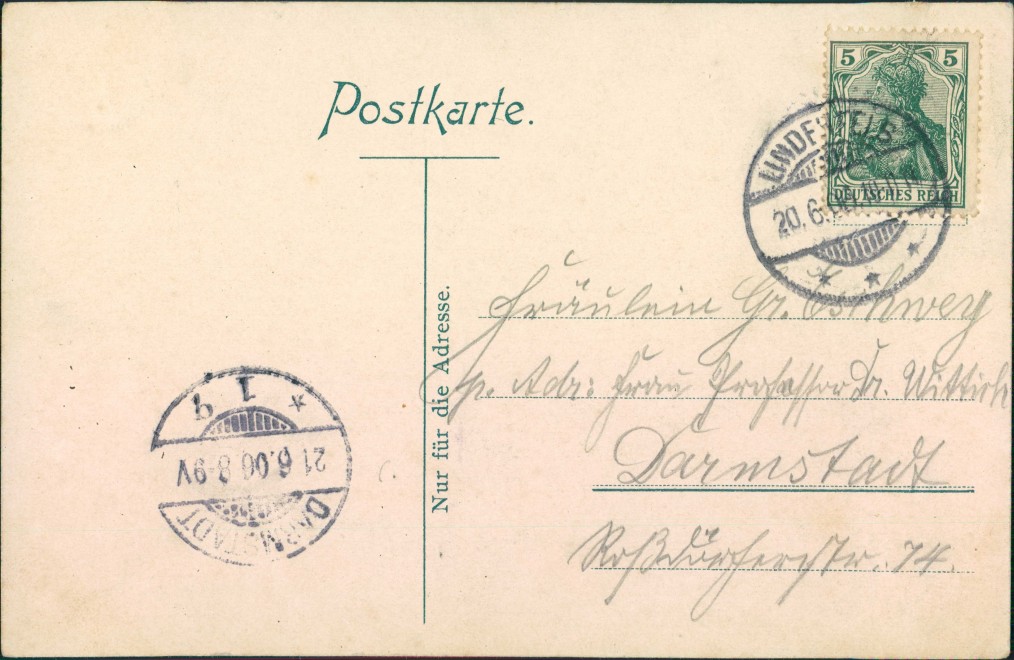 Postkarte.
5 5
DEUTSCHES REICH
LINDENFELS
20.6.
Nur für die Adresse.
Fräulein Gr. Eschweg
p. Adr: Frau Professor Dr. Wittich
Darmstadt
Roßdörferstr. 74.
1
21.6.06.8-9V
DARMSTADT